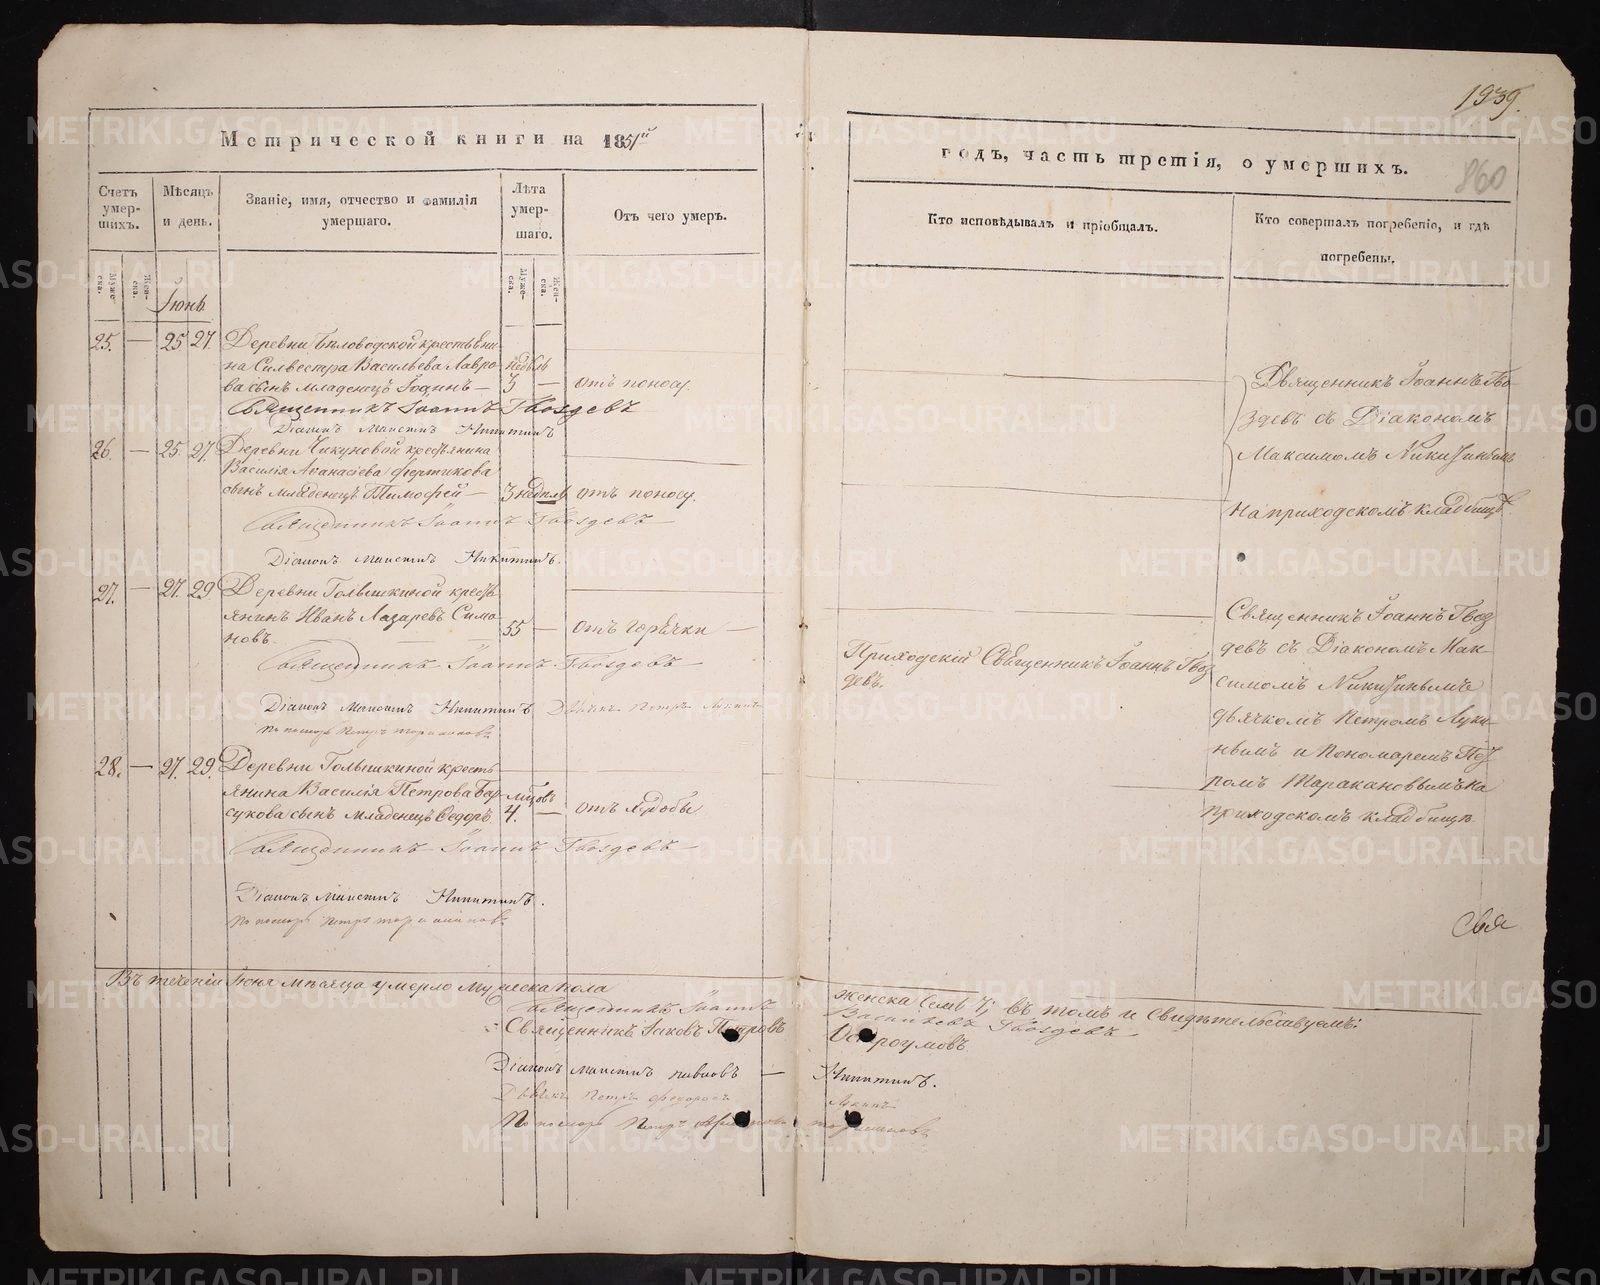 1939.
860
Метрической книги на 1851й
годъ, часть третія, о умершихъ.
Счетъ умер-шихъ.
Мѣсяцъ и день.
Званіе, имя, отчество и фамилія умершаго.
Лѣта умер-шаго.
Отъ чего умеръ.
Кто исповѣдывалъ и пріобщалъ.
Кто совершалъ погребеніе, и гдѣ погребены.
Муже-ска.
Жен-ска.
Муже-ска.
Жен-ска.
Іюнь
25. — 25 27. Деревни Бѣловодской крестьяни-
на Силвестра Васильева Лавро- недѣль
ва сынъ младенецъ Іоаннъ — 5 — отъ поносу.
Священникъ Іоаннъ Гвоздевъ
Діаконъ Максимъ Никитинъ
Священникъ Іоаннъ Гво
здевъ съ Діакономъ
Максимомъ Никитинымъ
на приходскомъ кладбищѣ.
26. — 25 27. Деревни Чикуновой крестьянина
Василія Аѳанасіева Фертикова
сынъ младенецъ Тимофей — 3 недѣль отъ поносу.
Священникъ Іоаннъ Гвоздевъ
Діаконъ Максимъ Никитинъ.
27. — 27. 29 Деревни Голышкиной кресть
янинъ Иванъ Лазаревъ Симо
новъ. 55 — отъ горячки —
Священникъ Іоаннъ Гвоздевъ
Діаконъ Максимъ Никитинъ Дьячекъ Петръ Лукинъ
Пономарь Петръ Таракановъ
Приходскій Священникъ Іоаннъ Гвоз
девъ.
Священникъ Іоаннъ Гвоз
девъ съ Діакономъ Мак-
симомъ Никитинымъ
дьячкомъ Петромъ Луки-
нымъ и Пономаремъ Пет
ромъ Таракановымъ на
приходскомъ кладбищѣ.
28. — 27. 29. Деревни Голышкиной кресть
янина Василія Петрова Бар-
сукова сынъ младенецъ Ѳедоръ. 4. — отъ худобы
Священникъ Іоаннъ Гвоздевъ
Діаконъ Максимъ Никитинъ.
Пономарь Петръ Таракановъ
Свя
Въ теченіи Іюня мѣсяца умерло мужеска пола
женска семь 7; въ томъ и свидѣтельствуемъ:
Священникъ Іоаннъ Васильевъ Гвоздевъ
Священникъ Іаковъ Петровъ Остроумовъ
Діаконъ Максимъ Никитинъ.
Дьячекъ Петръ Федоровъ Лукинъ
Пономарь Петръ Таракановъ